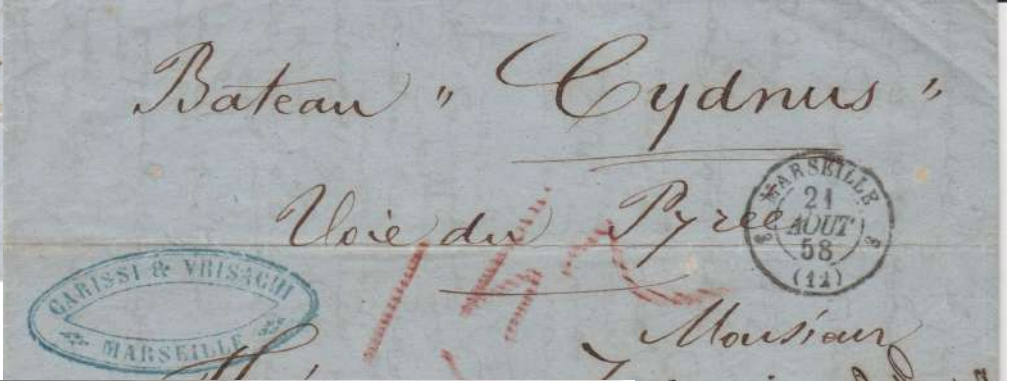 Bateau " Cydnus "
Voie du Pyrée
MARSEILLE
21
AOUT
58
(11)
GARISSI & VRISAGHI
MARSEILLE
Monsieur